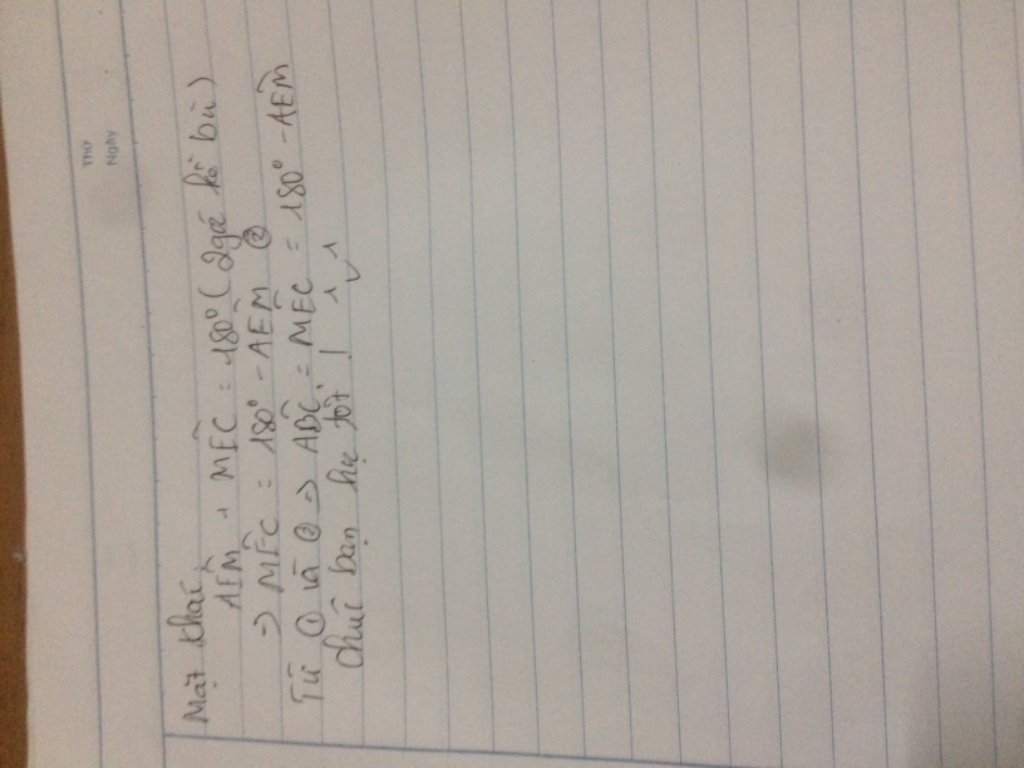 Thứ
Ngày
Mặt khác,
AÊM + MÊC = 180° (2 góc kề bù)
=> MÊC = 180° - AÊM ②
Từ ① và ② => ABC = MEC = 180° - AÊM
Chúc bạn học tốt !